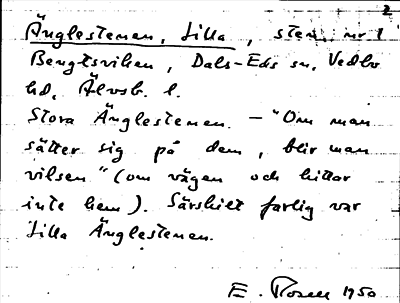 2
Änglestenen, Lilla, sten, nr 1
Bengtsviken, Dals-Eds sn, Vedbo
hd, Älvsb. l.
Stora Änglestenen. – "Om man
sätter sig på dem, blir man
vilsen" (om vägen och hittar
inte hem). Särskilt farlig var
Lilla Änglestenen.
E. Rosell 1950